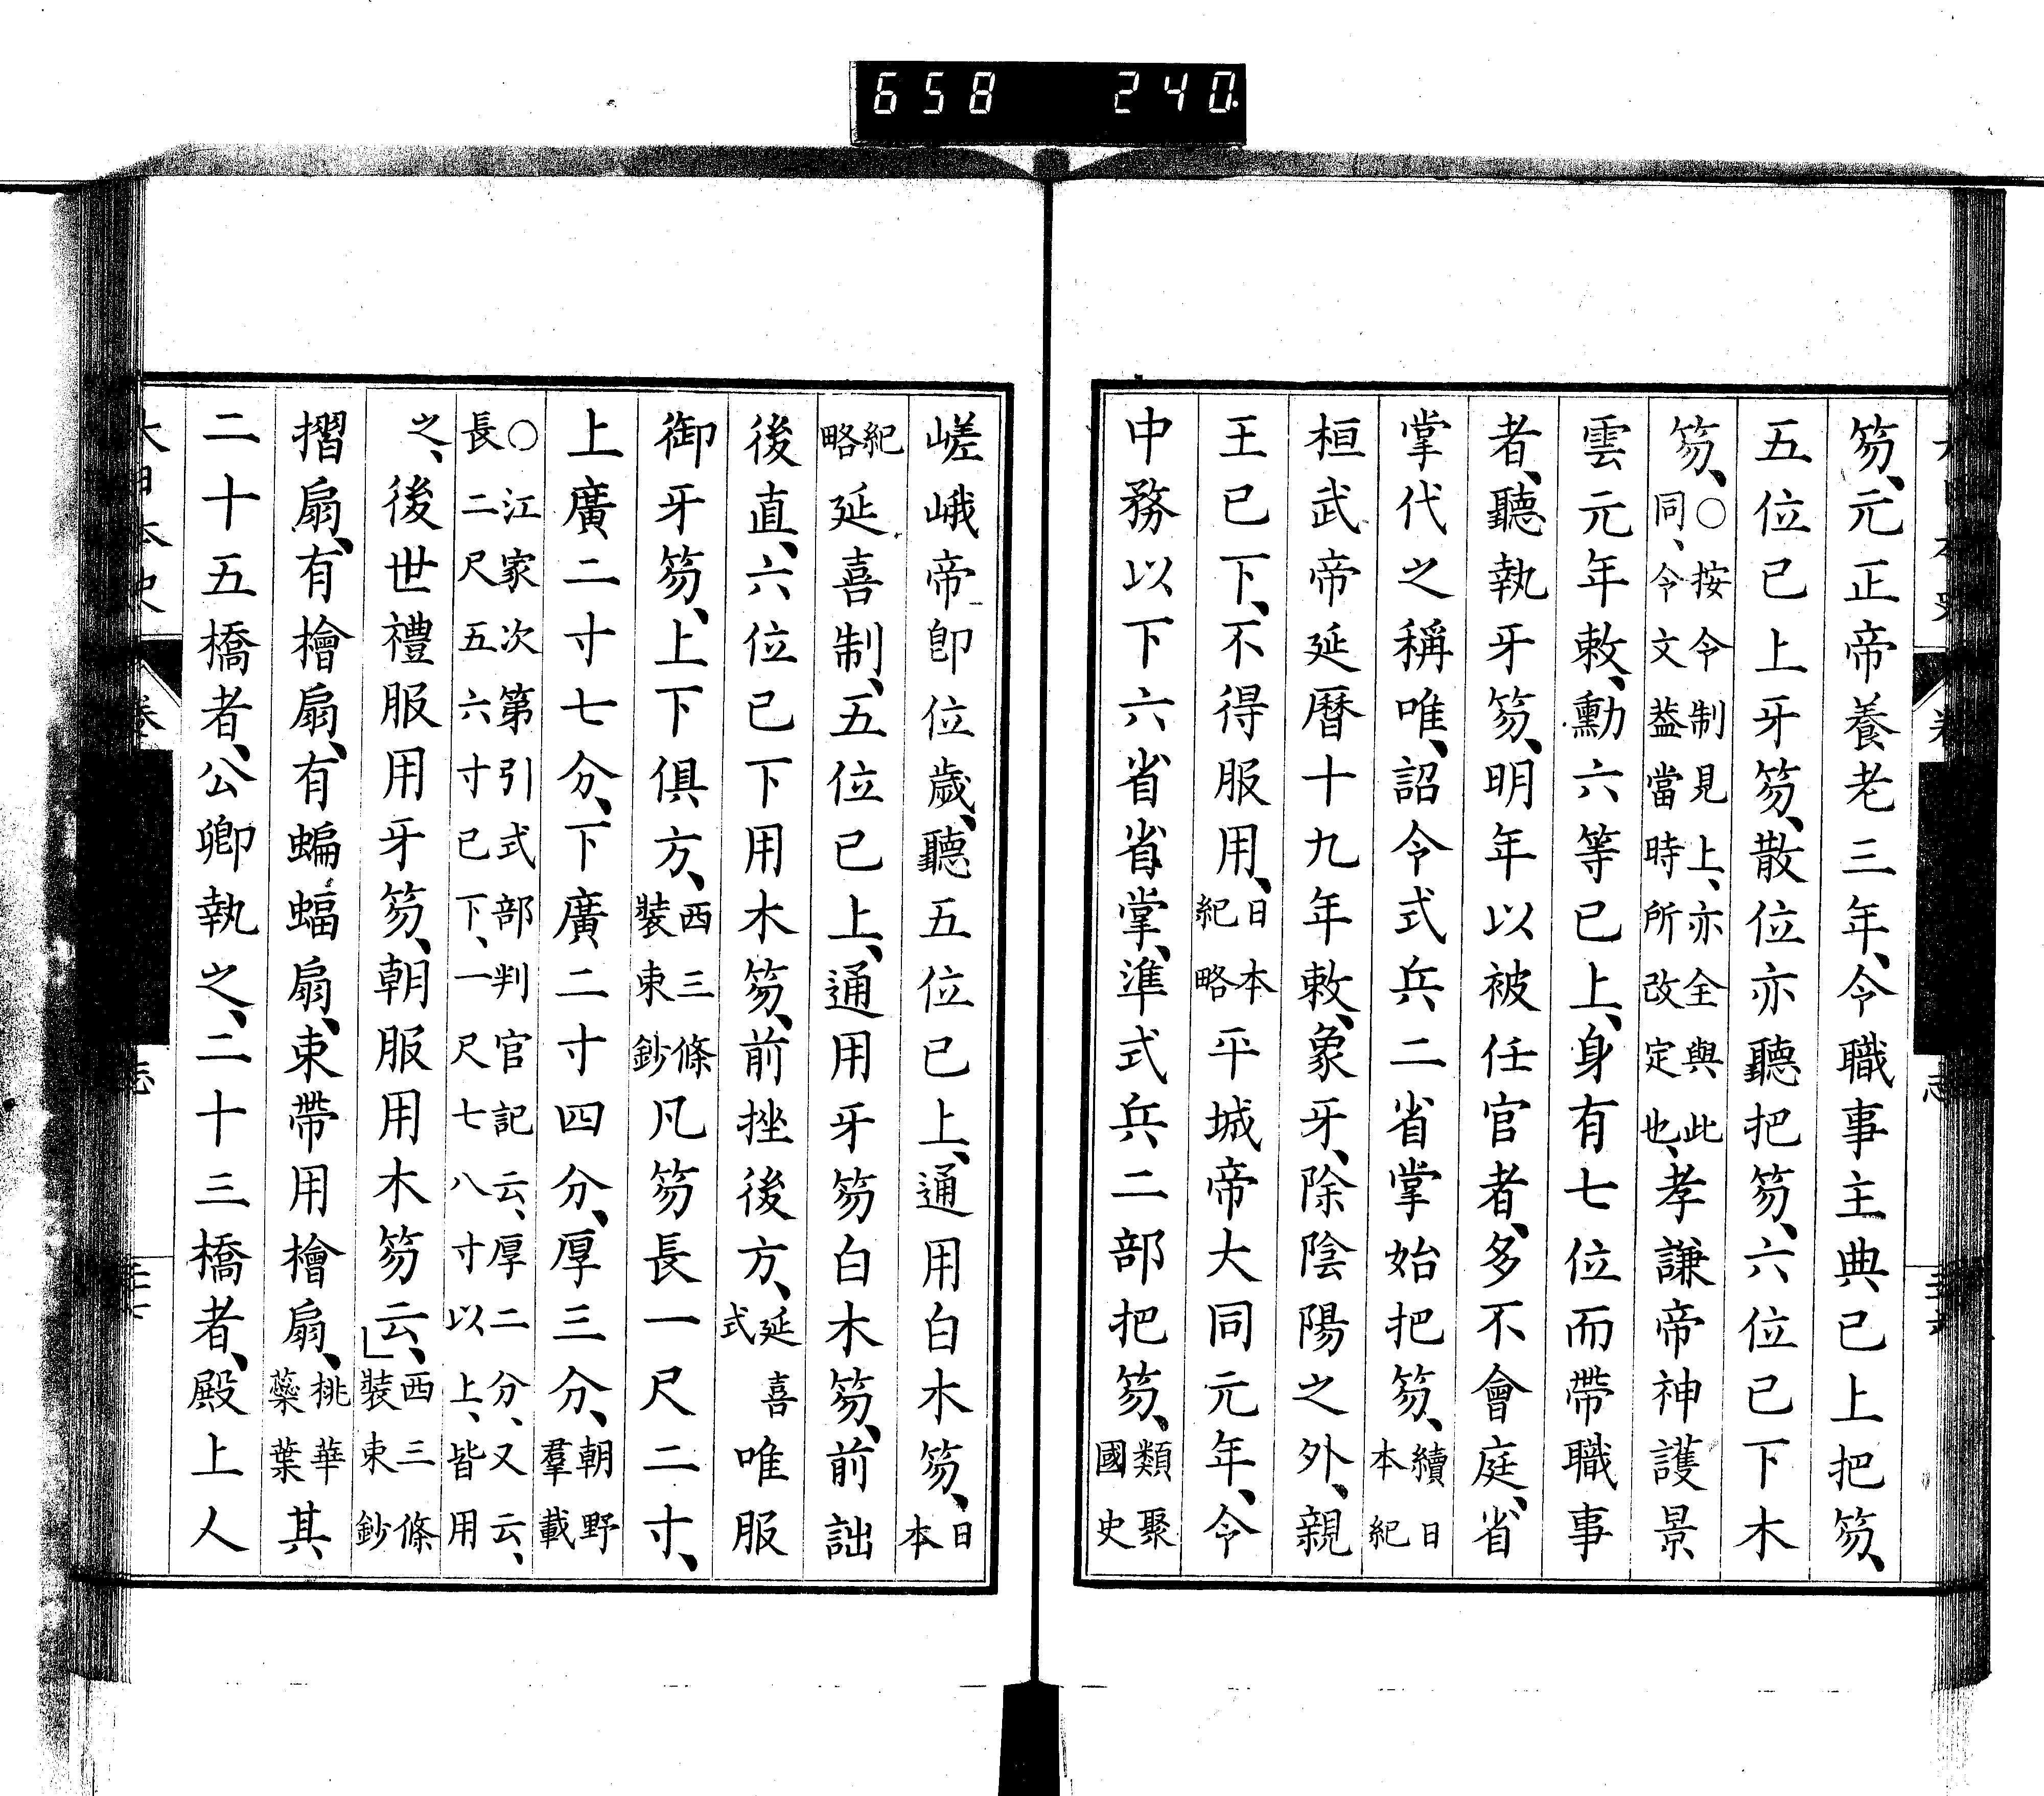 658 240
笏、元正帝養老三年、令職事主典已上把笏、
五位已上牙笏、散位亦聽把笏、六位已下木
笏、○按令制見上、亦全與此同、令文蓋當時所改定也、孝謙帝神護景
雲元年敕、勳六等已上、身有七位而帶職事
者、聽執牙笏、明年以被任官者、多不會庭、省
掌代之稱唯、詔令式兵二省掌始把笏、續日本紀
桓武帝延曆十九年敕、象牙、除陰陽之外、親
王已下、不得服用、日本紀略平城帝大同元年、令
中務以下六省省掌、準式兵二部把笏、類聚國史
嵯峨帝卽位歲、聽五位已上、通用白木笏、日本
紀略延喜制、五位已上、通用牙笏白木笏、前詘
後直、六位已下用木笏、前挫後方、延喜式唯服
御牙笏、上下俱方、西三條裝束鈔凡笏長一尺二寸、
上廣二寸七分、下廣二寸四分、厚三分、朝野羣載
○江家次第引式部判官記云、厚二分、又云、長二尺五六寸已下、一尺七八寸以上、皆用
之、後世禮服用牙笏、朝服用木笏云、西三條裝束鈔
摺扇、有檜扇、有蝙蝠扇、束帶用檜扇、桃華蘂葉其
二十五橋者、公卿執之、二十三橋者、殿上人
大日本史 卷 志